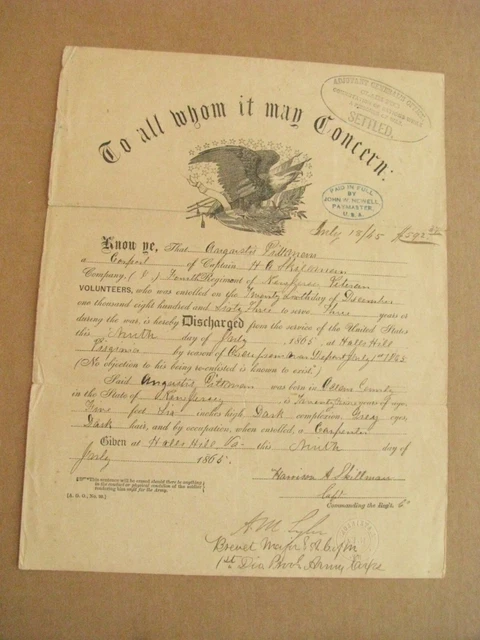 ADJUTANT GENERAL'S OFFICE
SETTLED.
To all whom it may Concern:
PAID IN FULL
BY
JOHN N. NEWELL,
PAYMASTER,
U.S.A.
July 18/65
Know ye, That Augustis Pittman
a of Captain H A Skillman
Company, ( ) Fourth Regiment of New Jersey Veteran
VOLUNTEERS, who was enrolled on the day of December
one thousand eight hundred and Sixty Three to serve Three years or
during the war, is hereby Discharged from the service of the United States
this Ninth day of July, 1865, at Halls Hill
Virginia by reason of War Depart July 1st 1865
(No objection to his being re-enlisted is known to exist.)
Said Augustis Pittman was born in County
in the State of New Jersey, is years of age,
Five feet Six inches high, Dark complexion, Grey eyes,
Dark hair, and by occupation, when enrolled, a Carpenter
Given at Halls Hill Va. this Ninth day of
July 1865.
This sentence will be erased should there be anything
in the conduct or physical condition of the soldier
rendering him unfit for the Army.
[A. G. O., No. 99.]
Harrison A Skillman
Capt
Commanding the Reg't.
A M
Brevet Major &
1st Div Army Corps